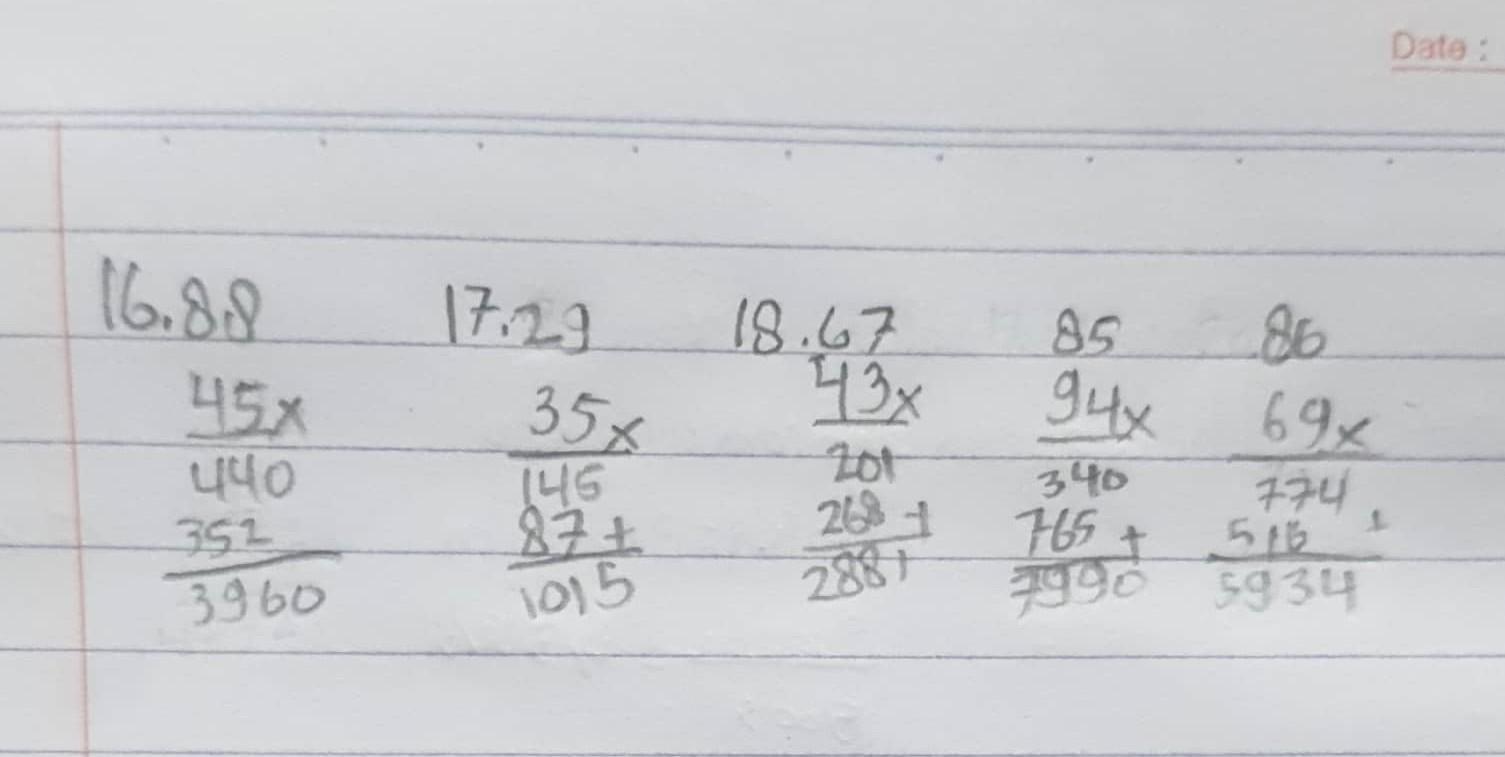 Date :
16.88 17.29 18.67 85 86
45x 35x 43x 94x 69x
440 145 201 340 774
352 87+ 268+ 765+ 516+
3960 1015 2881 7990 5934